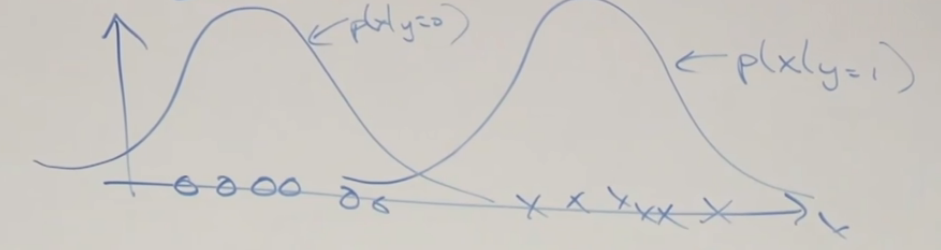 p(x|y=0)
p(x|y=1)
o o o o o o x x x x x x
x